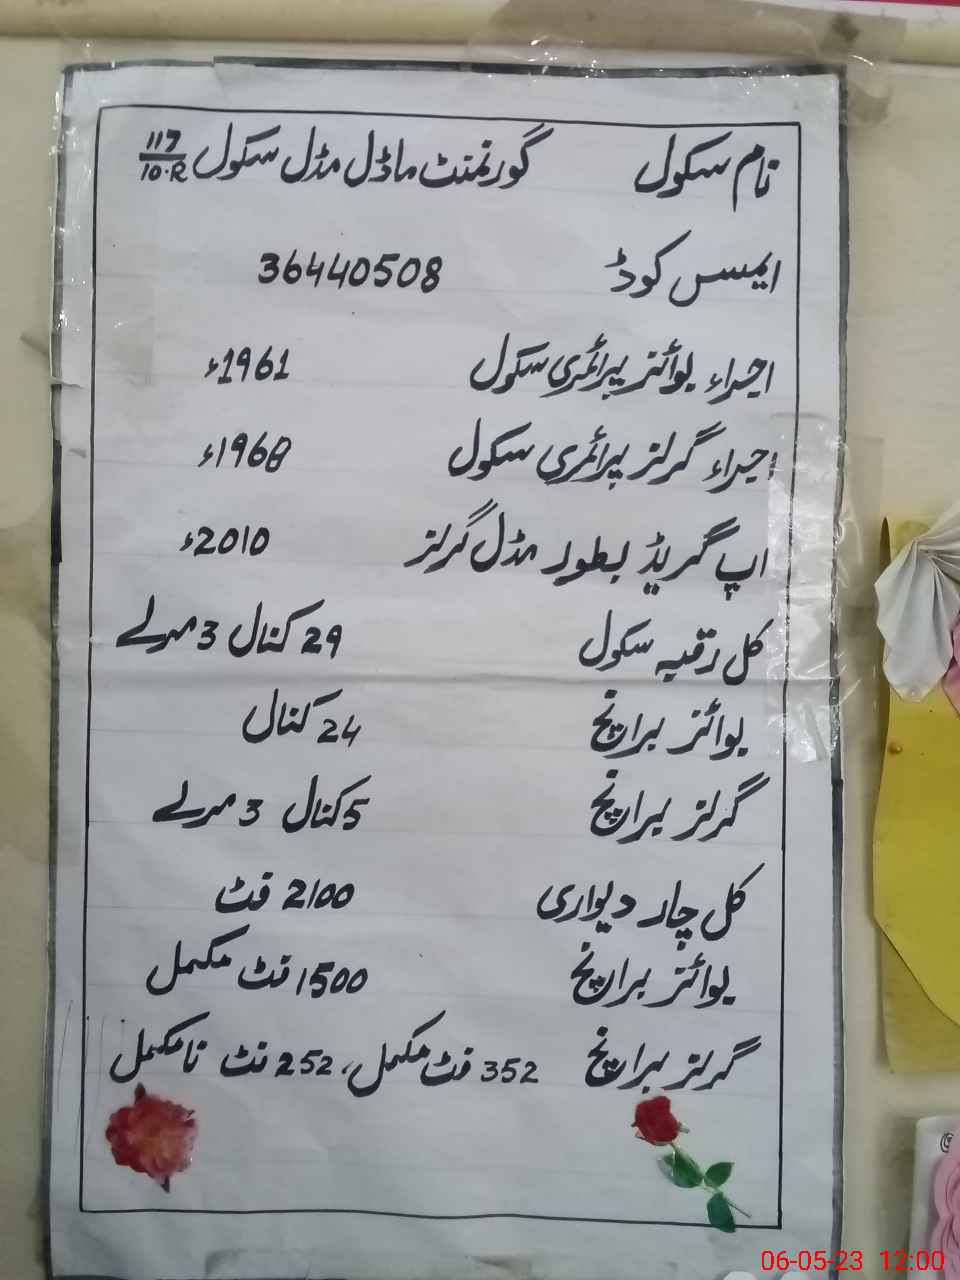 نام سکول گورنمنٹ ماڈل مڈل سکول 117/10.R
ایمس کوڈ 36440508
اجراء بوائز پرائمری سکول 1961ء
اجراء گرلز پرائمری سکول 1968ء
اپ گریڈ بطور مڈل گرلز 2010ء
کل رقبہ سکول 29 کنال 3 مرلے
بوائز برانچ 24 کنال
گرلز برانچ 5 کنال 3 مرلے
کل چار دیواری 2100 فٹ
بوائز برانچ 1500 فٹ مکمل
گرلز برانچ 352 فٹ مکمل، 252 فٹ نامکمل
06-05-23 12:00